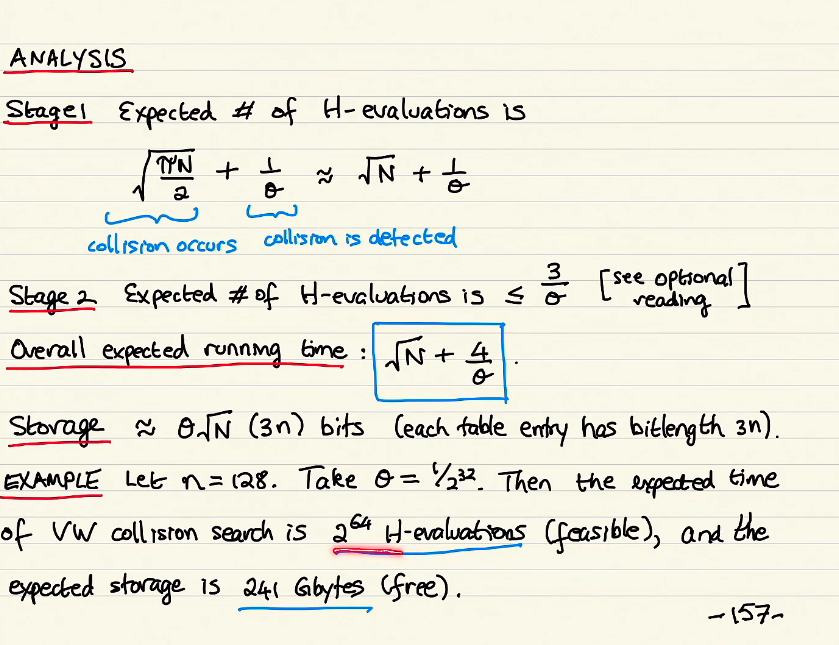 ANALYSIS
Stage 1 Expected # of H-evaluations is
√(πN/2) + 1/θ ≈ √N + 1/θ
collision occurs collision is detected
Stage 2 Expected # of H-evaluations is ≤ 3/θ [see optional reading]
Overall expected running time : √N + 4/θ .
Storage ≈ θ√N (3n) bits (each table entry has bitlength 3n).
EXAMPLE Let n=128. Take θ = 1/2^32. Then the expected time
of VW collision search is 2^64 H-evaluations (feasible), and the
expected storage is 241 Gbytes (free).
-157-